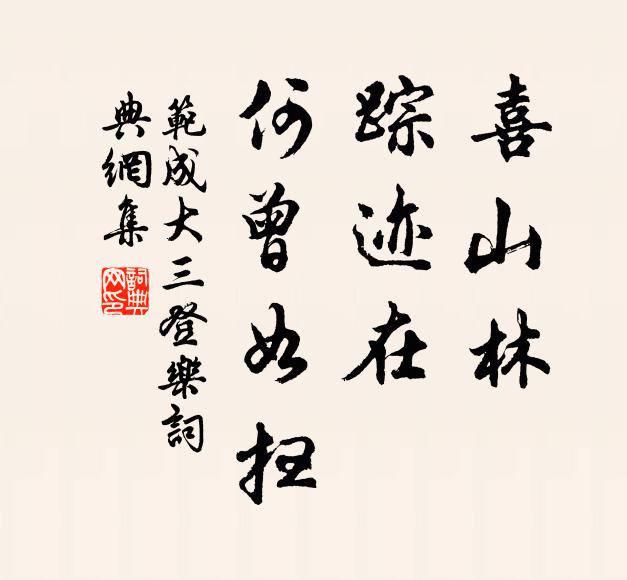 喜山林
踪迹在
何曾如
範成大三登樂詞
典網集
詞典
网印